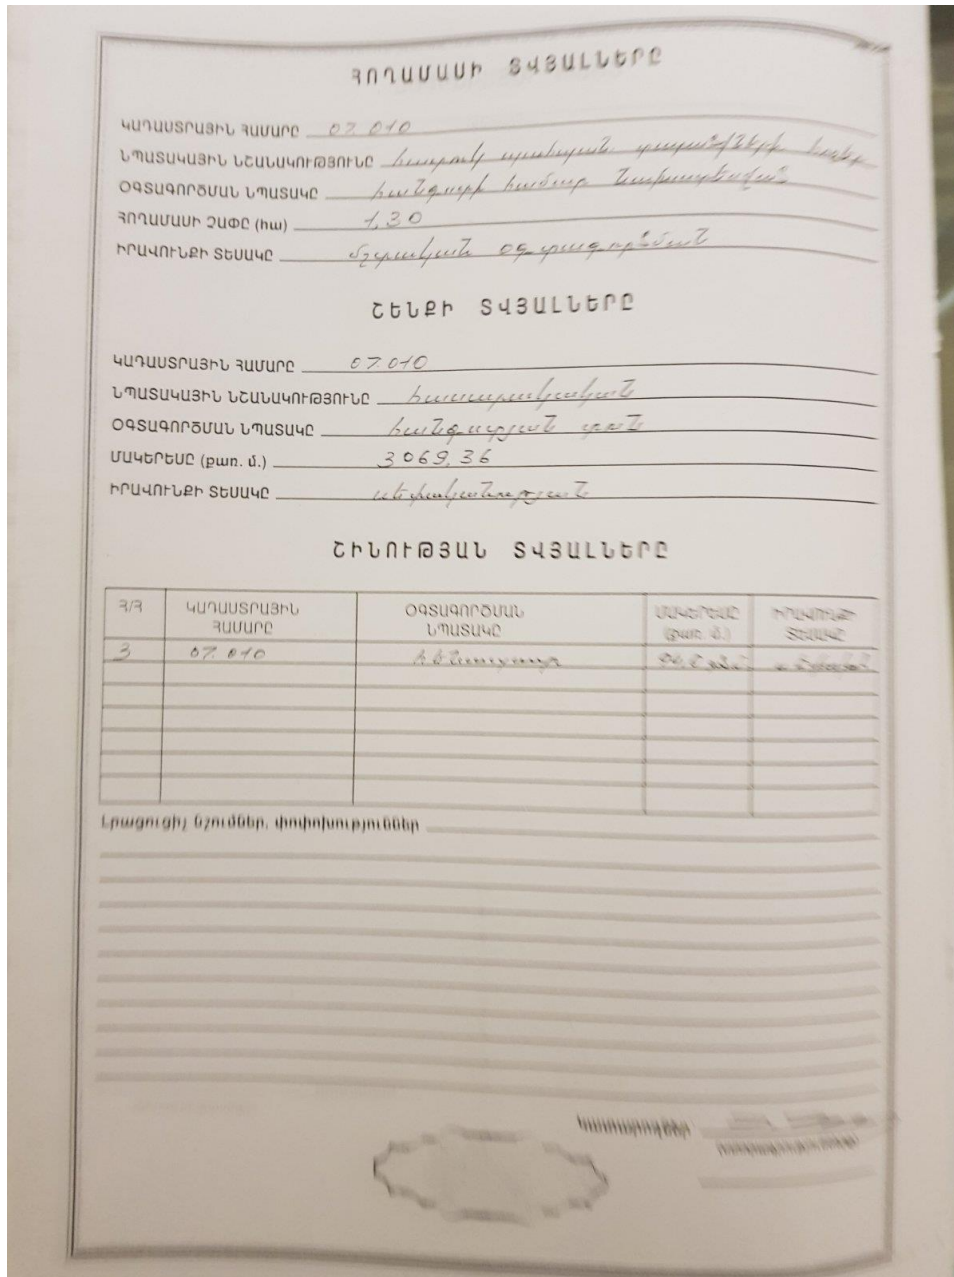 ՀՈՂԱՄԱՍԻ ՏՎՅԱԼՆԵՐԸ
ԿԱԴԱՍՏՐԱՅԻՆ ՀԱՄԱՐԸ 07.010
ՆՊԱՏԱԿԱՅԻՆ ՆՇԱՆԱԿՈՒԹՅՈՒՆԸ հատուկ պահպան. տարածքների հողեր
ՕԳՏԱԳՈՐԾՄԱՆ ՆՊԱՏԱԿԸ հանգստի համար նախատեսված
ՀՈՂԱՄԱՍԻ ՉԱՓԸ (հա) 1,30
ԻՐԱՎՈՒՆՔԻ ՏԵՍԱԿԸ մշտական օգտագործման
ՇԵՆՔԻ ՏՎՅԱԼՆԵՐԸ
ԿԱԴԱՍՏՐԱՅԻՆ ՀԱՄԱՐԸ 07.010
ՆՊԱՏԱԿԱՅԻՆ ՆՇԱՆԱԿՈՒԹՅՈՒՆԸ հասարակական
ՕԳՏԱԳՈՐԾՄԱՆ ՆՊԱՏԱԿԸ հանգստյան տուն
ՄԱԿԵՐԵՍԸ (քառ. մ.) 3069,36
ԻՐԱՎՈՒՆՔԻ ՏԵՍԱԿԸ սեփականության
ՇԻՆՈՒԹՅԱՆ ՏՎՅԱԼՆԵՐԸ
Հ/Հ ԿԱԴԱՍՏՐԱՅԻՆ ՀԱՄԱՐԸ ՕԳՏԱԳՈՐԾՄԱՆ ՆՊԱՏԱԿԸ ՄԱԿԵՐԵՍԸ (քառ. մ.) ԻՐԱՎՈՒՆՔԻ ՏԵՍԱԿԸ
3 07.010
Լրացուցիչ նշումներ, փոփոխություններ
Կատարողներ